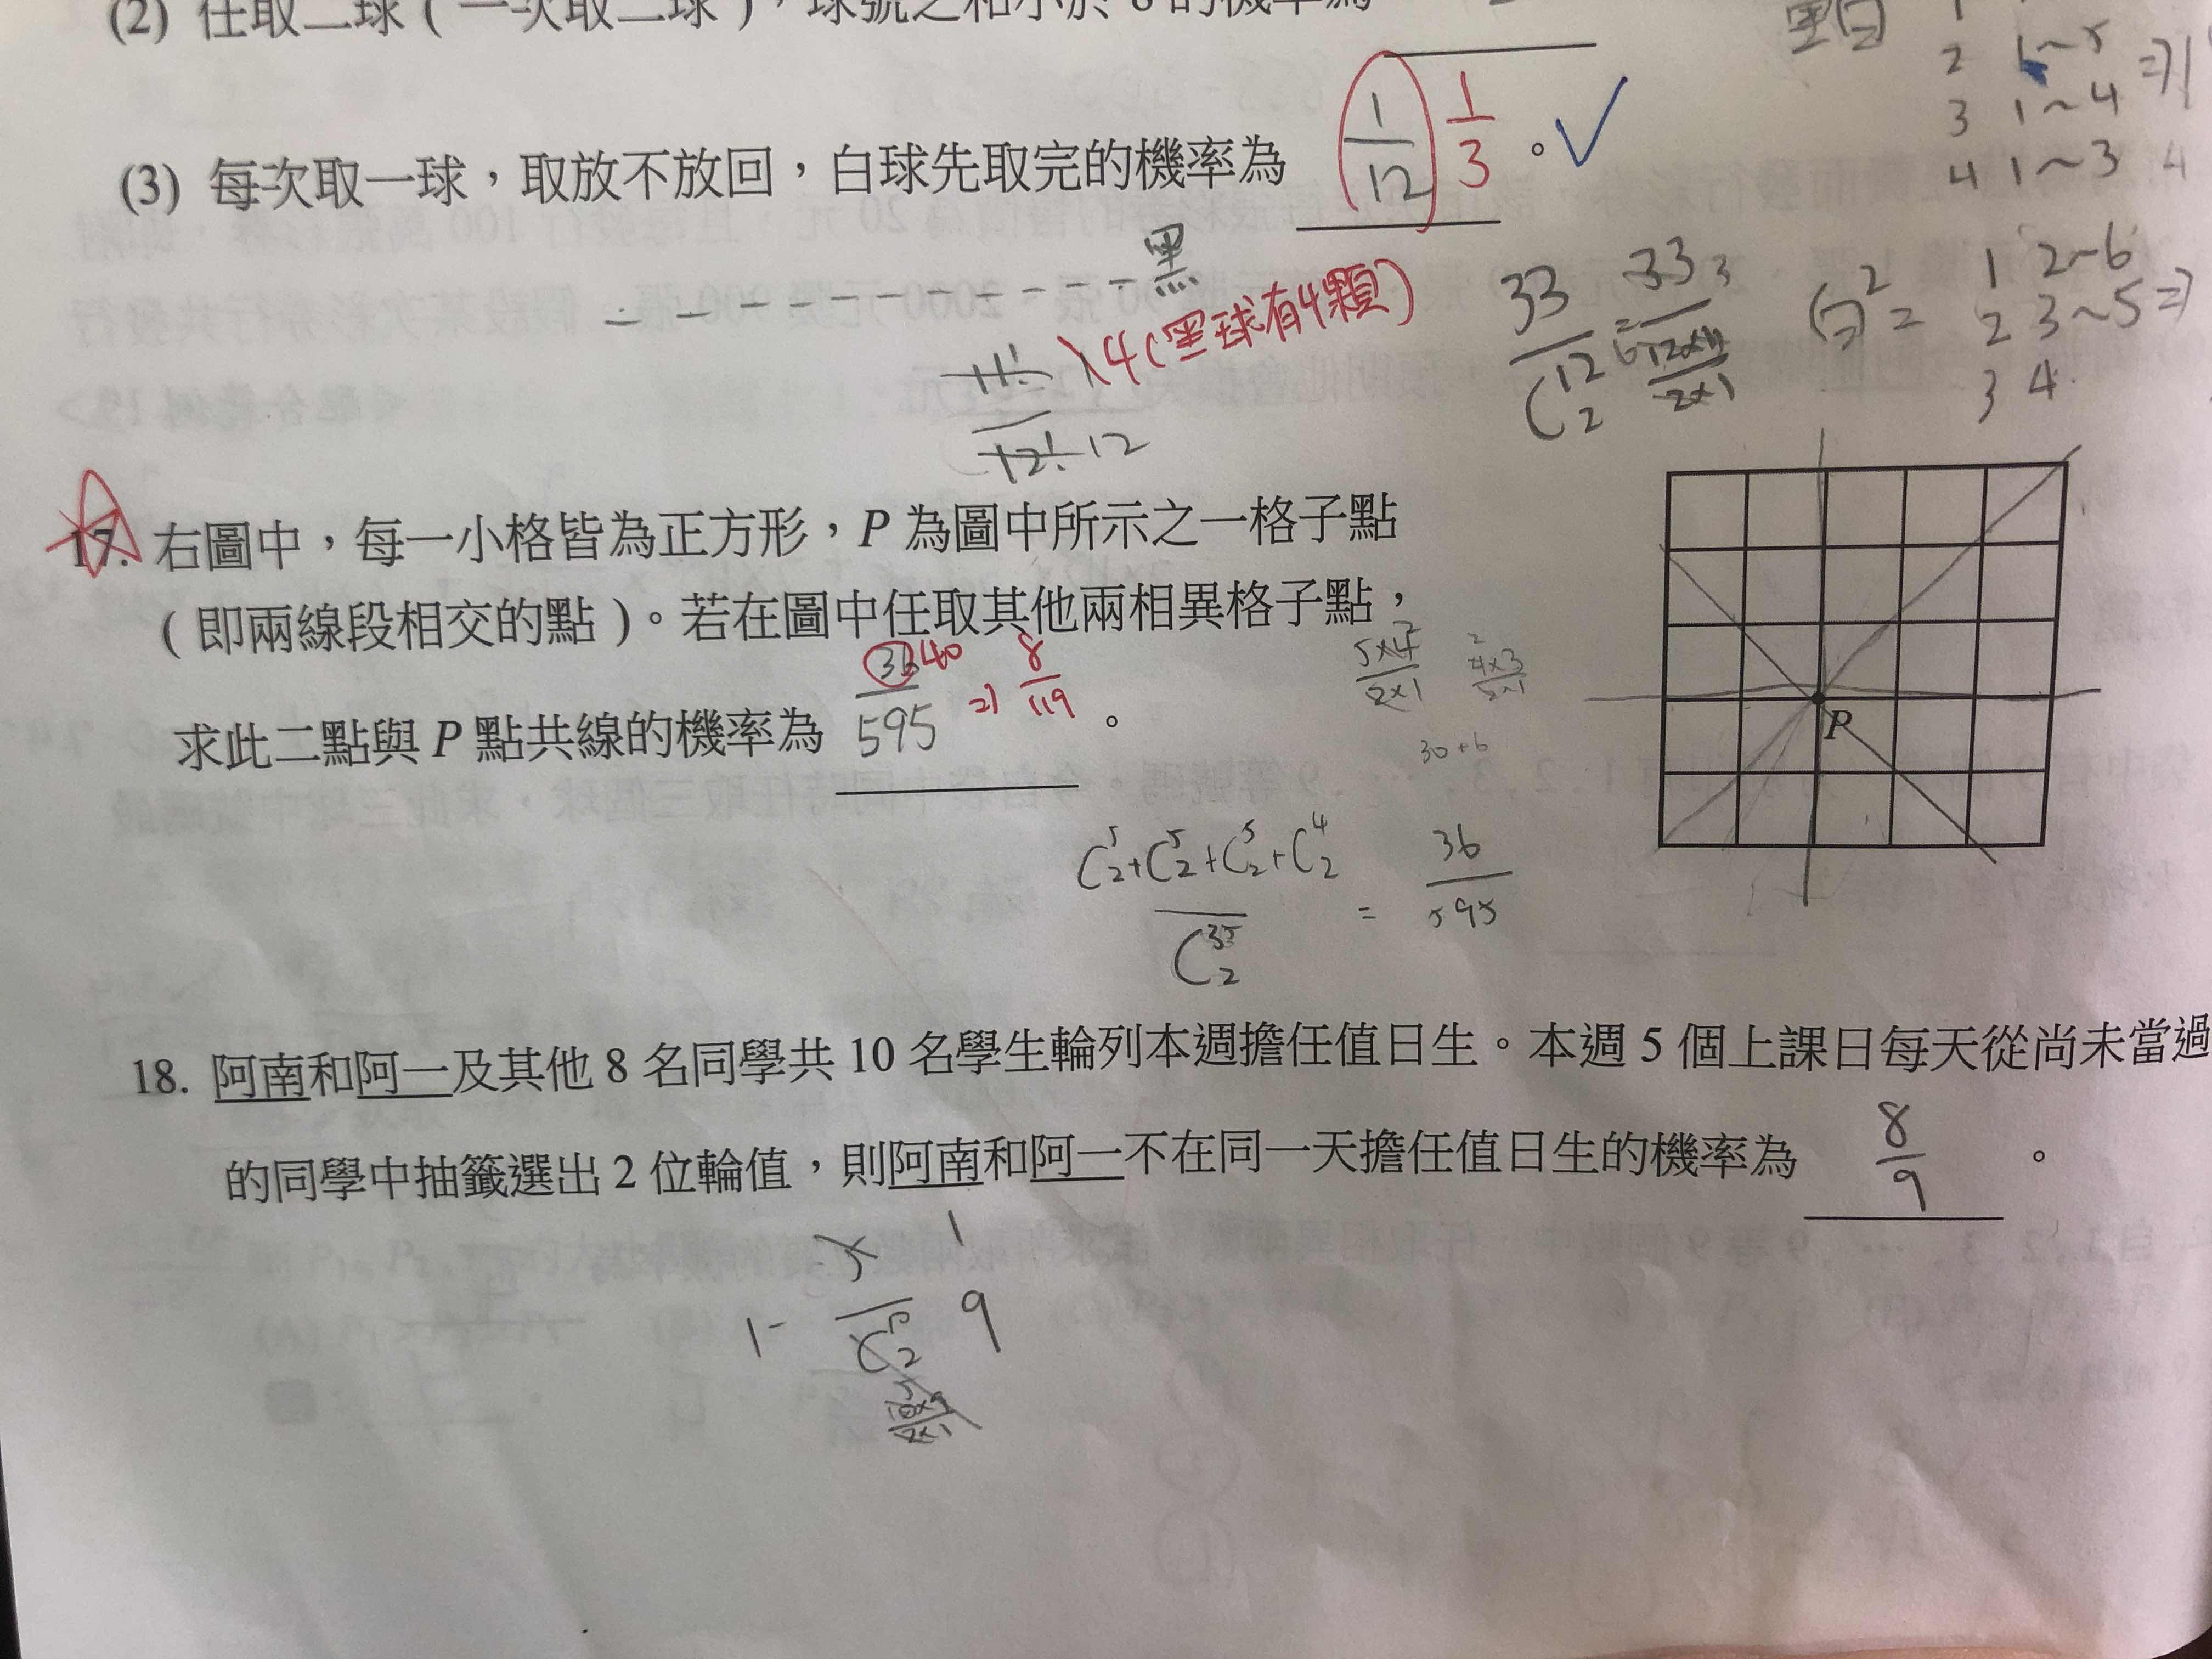 (2) 任取二球 ( 一次取二球 )，球號之和小於 8 的機率為
黑白 1
2 1~5
3 1~4
4 1~3 4
(3) 每次取一球，取放不放回，白球先取完的機率為 1/12 1/3 。
黑
11!/12! 12 ×4 (黑球有4顆)
33/C12 2 = 33 3/12×11/2×1
白² = 1 2~6
2 3~5 ⇒
3 4
17. 右圖中，每一小格皆為正方形，P 為圖中所示之一格子點
( 即兩線段相交的點 )。若在圖中任取其他兩相異格子點，
求此二點與 P 點共線的機率為 36/595 40 ⇒ 8/119 。
5×4²/2×1 4×3/2×1
30+6
P
C5 2+C5 2+C5 2+C4 2/C35 2 = 36/595
18. 阿南和阿一及其他 8 名同學共 10 名學生輪列本週擔任值日生。本週 5 個上課日每天從尚未當過
的同學中抽籤選出 2 位輪值，則阿南和阿一不在同一天擔任值日生的機率為 8/9 。
1- 5/C10 2 1 9
10×9/2×1